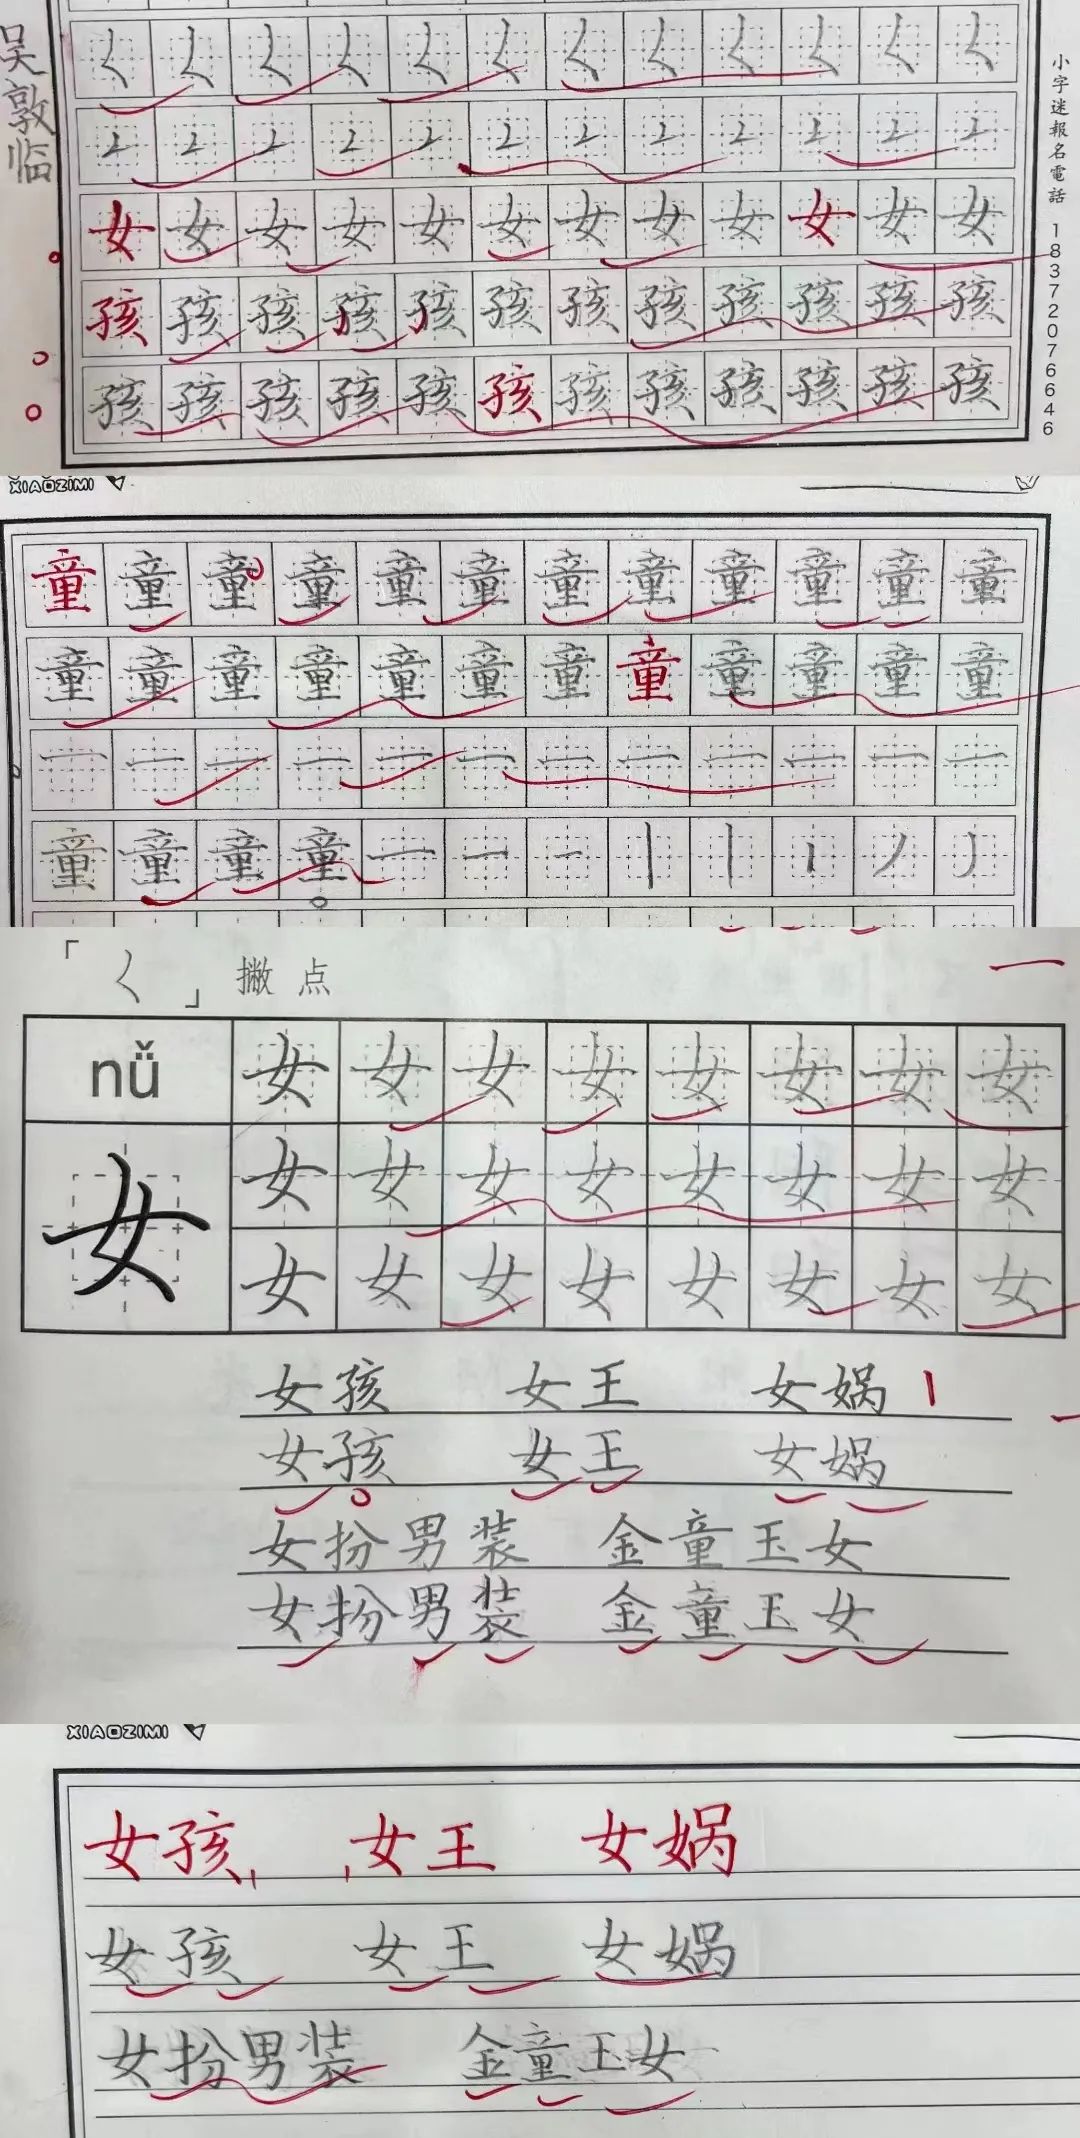 吴敦临
小字迷報名電話 18372076646
く く く く く く く く く く く く
女 女 女 女 女 女 女 女 女 女 女 女
孩 孩 孩 孩 孩 孩 孩 孩 孩 孩 孩 孩
孩 孩 孩 孩 孩 孩 孩 孩 孩 孩 孩 孩
XIAOZIMI
童 童 童 童 童 童 童 童 童 童 童 童
童 童 童 童 童 童 童 童 童 童 童 童
一 一 一 一 一 一 一 一 一 一 一 一
童 童 童 童 一 一 一 丨 丨 丨 丿 丿
「く」 撇点
nǚ 女 女 女 女 女 女 女 女
女 女 女 女 女 女 女 女 女
女 女 女 女 女 女 女 女
女孩 女王 女娲
女孩 女王 女娲
女扮男装 金童玉女
女扮男装 金童玉女
XIAOZIMI
女孩 女王 女娲
女孩 女王 女娲
女扮男装 金童玉女